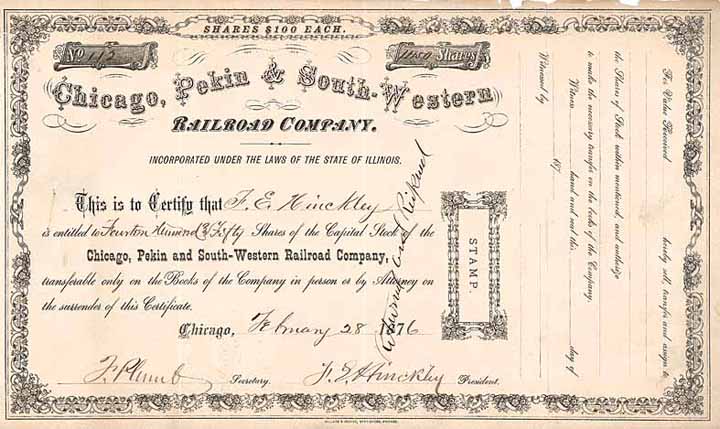 SHARES $100 EACH.
No 112
1450 Shares
Chicago, Pekin & South-Western
RAILROAD COMPANY.
INCORPORATED UNDER THE LAWS OF THE STATE OF ILLINOIS.
This is to Certify that F. E. Hinckley
is entitled to Hundred & Fifty Shares of the Capital Stock of the
Chicago, Pekin and South-Western Railroad Company,
transferable only on the Books of the Company in person or by Attorney on
the surrender of this Certificate.
Chicago, February 28 1876
F. Plumb Secretary. F. E. Hinckley President.
STAMP.
and
For Value Received hereby sell, transfer and assign to
the Shares of Stock within mentioned, and authorize
to make the necessary transfer on the books of the Company.
Witness hand and seal this, day of
187
Witnessed by